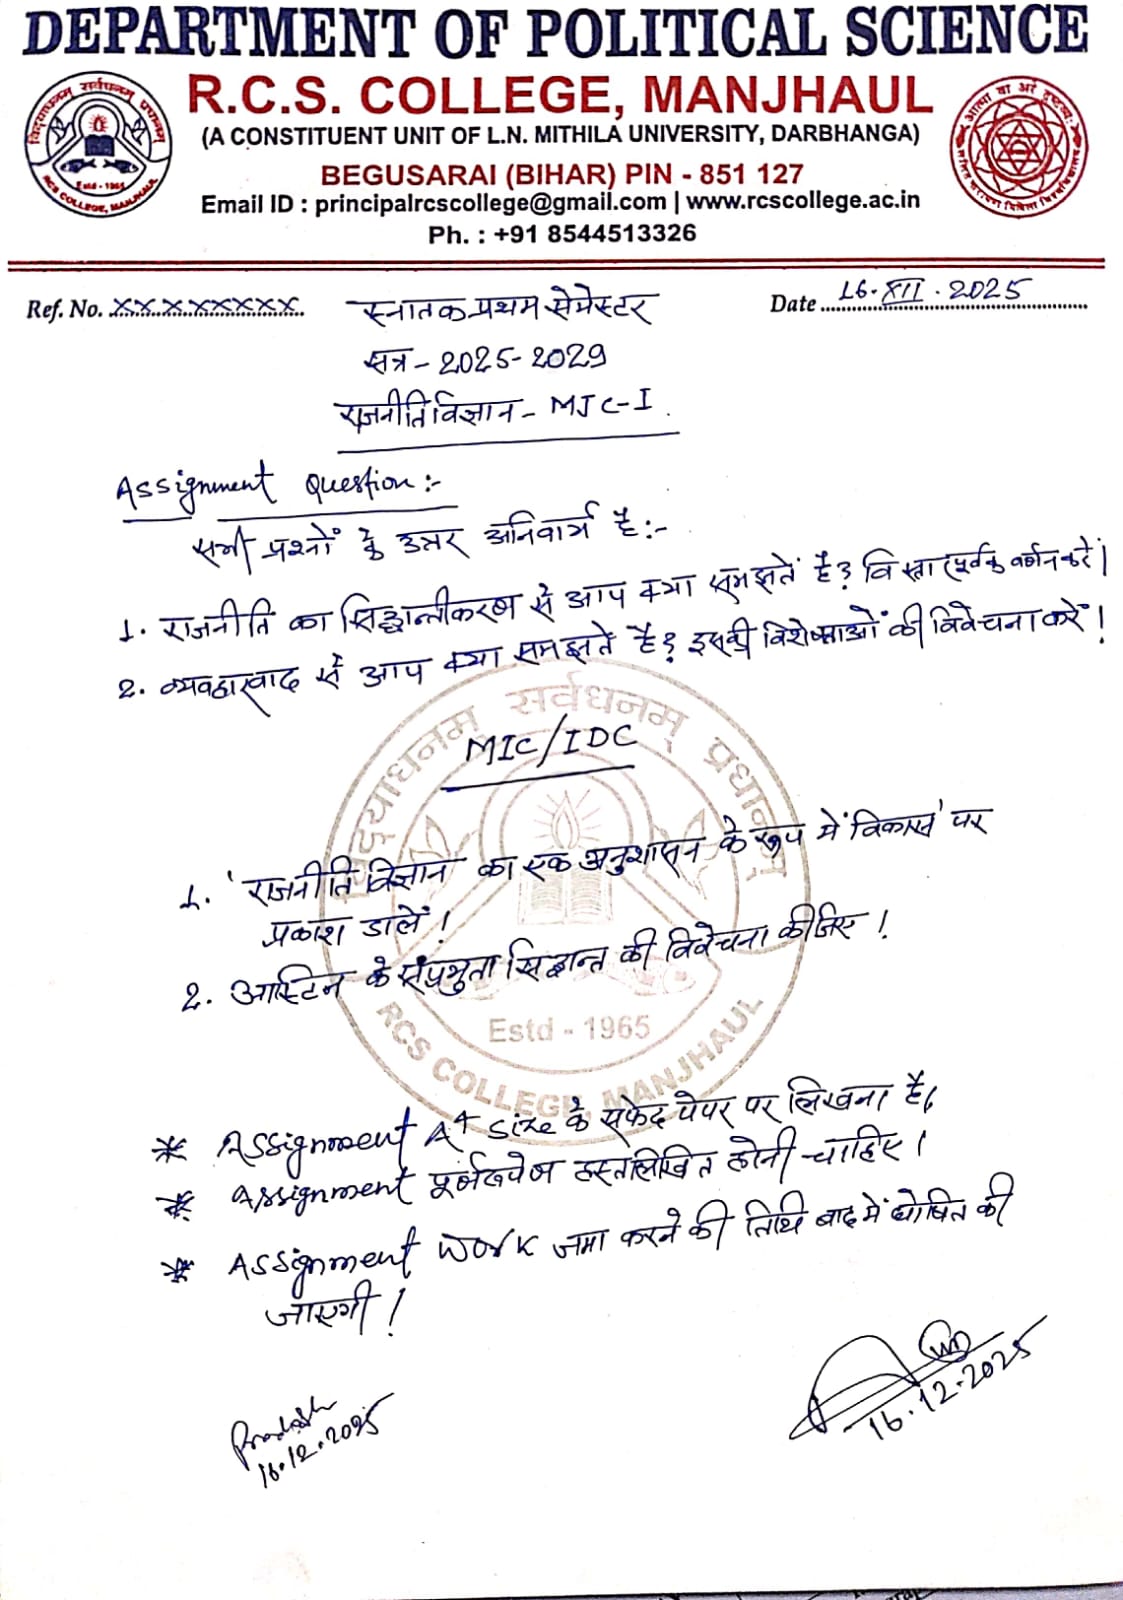 DEPARTMENT OF POLITICAL SCIENCE
R.C.S. COLLEGE, MANJHAUL
(A CONSTITUENT UNIT OF L.N. MITHILA UNIVERSITY, DARBHANGA)
BEGUSARAI (BIHAR) PIN - 851 127
Email ID : principalrcscollege@gmail.com | www.rcscollege.ac.in
Ph. : +91 8544513326
विद्याधनम् सर्वधनम् प्रधानम्
Estd - 1965
RCS COLLEGE, MANJHAUL
Ref. No. XXXXXXXXX
Date 16.XII.2025
स्नातक प्रथम सेमेस्टर
सत्र - 2025-2029
राजनीति विज्ञान - MJC-I.
Assignment Question:-
सभी प्रश्नों के उत्तर अनिवार्य है:-
1. राजनीति का सिद्धान्तीकरण से आप क्या समझतें है? विस्तारपूर्वक वर्णन करें।
2. व्यवहारवाद से आप क्या समझते है? इसकी विशेषताओं की विवेचना करें!
MIC/IDC
1. 'राजनीति विज्ञान का एक अनुशासन के रूप में विकास' पर
प्रकाश डालें!
2. आस्टिन के संप्रभुता सिद्धान्त की विवेचना कीजिए!
विद्याधनम् सर्वधनम् प्रधानम्
Estd - 1965
RCS COLLEGE, MANJHAUL
* Assignment A4 Size के सफेद पेपर पर लिखना है।
* Assignment पूर्णरूपेण हस्तलिखित होनी चाहिए।
* Assignment Work जमा करने की तिथि बाद में घोषित की
जाएगी!
Prakash
16.12.2025
16.12.2025